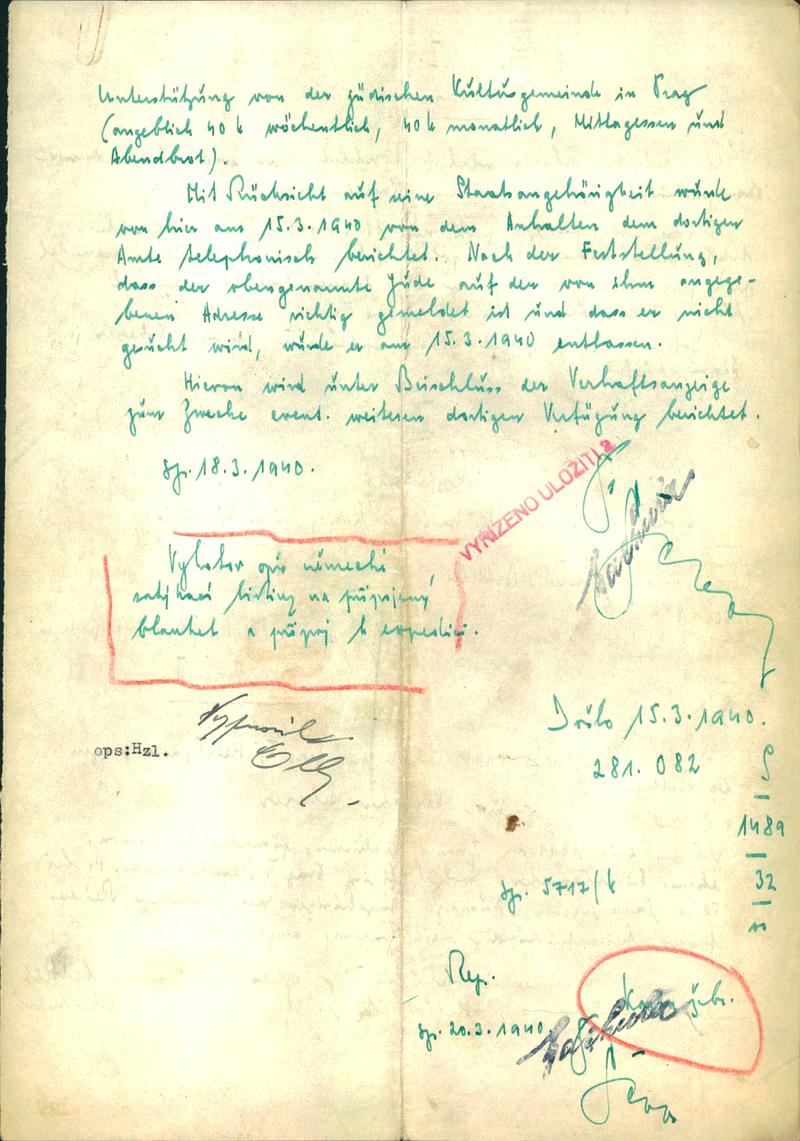 Unterstützung von der jüdischen Kultusgemeinde in Prag
(angeblich 40 k wöchentlich, 40 k monatlich, Mittagessen und
Abendbrot).
Mit Rücksicht auf seine Staatsangehörigkeit wurde
von hier aus 15.3.1940 von dem Anhalten dem dortigen
Amte telephonisch berichtet. Nach der Feststellung,
dass der obengenannte Jude auf der von ihm angege-
benen Adresse richtig gemeldet ist und dass er nicht
gesucht wird, wurde er am 15.3.1940 entlassen.
Hievon wird unter Beischluss der Verhaftsanzeige
zum Zwecke event. weiteren dortigen Verfügung berichtet.
18.3.1940.
VYŘÍZENO ULOŽITI
Vyhotov opis německé
zatýkací listiny na připojený
blanket a připoj k expedici.
ops:Hzl.
Došlo 15.3.1940.
281.082
5
1489
32
5717/k
Rep.
20.3.1940